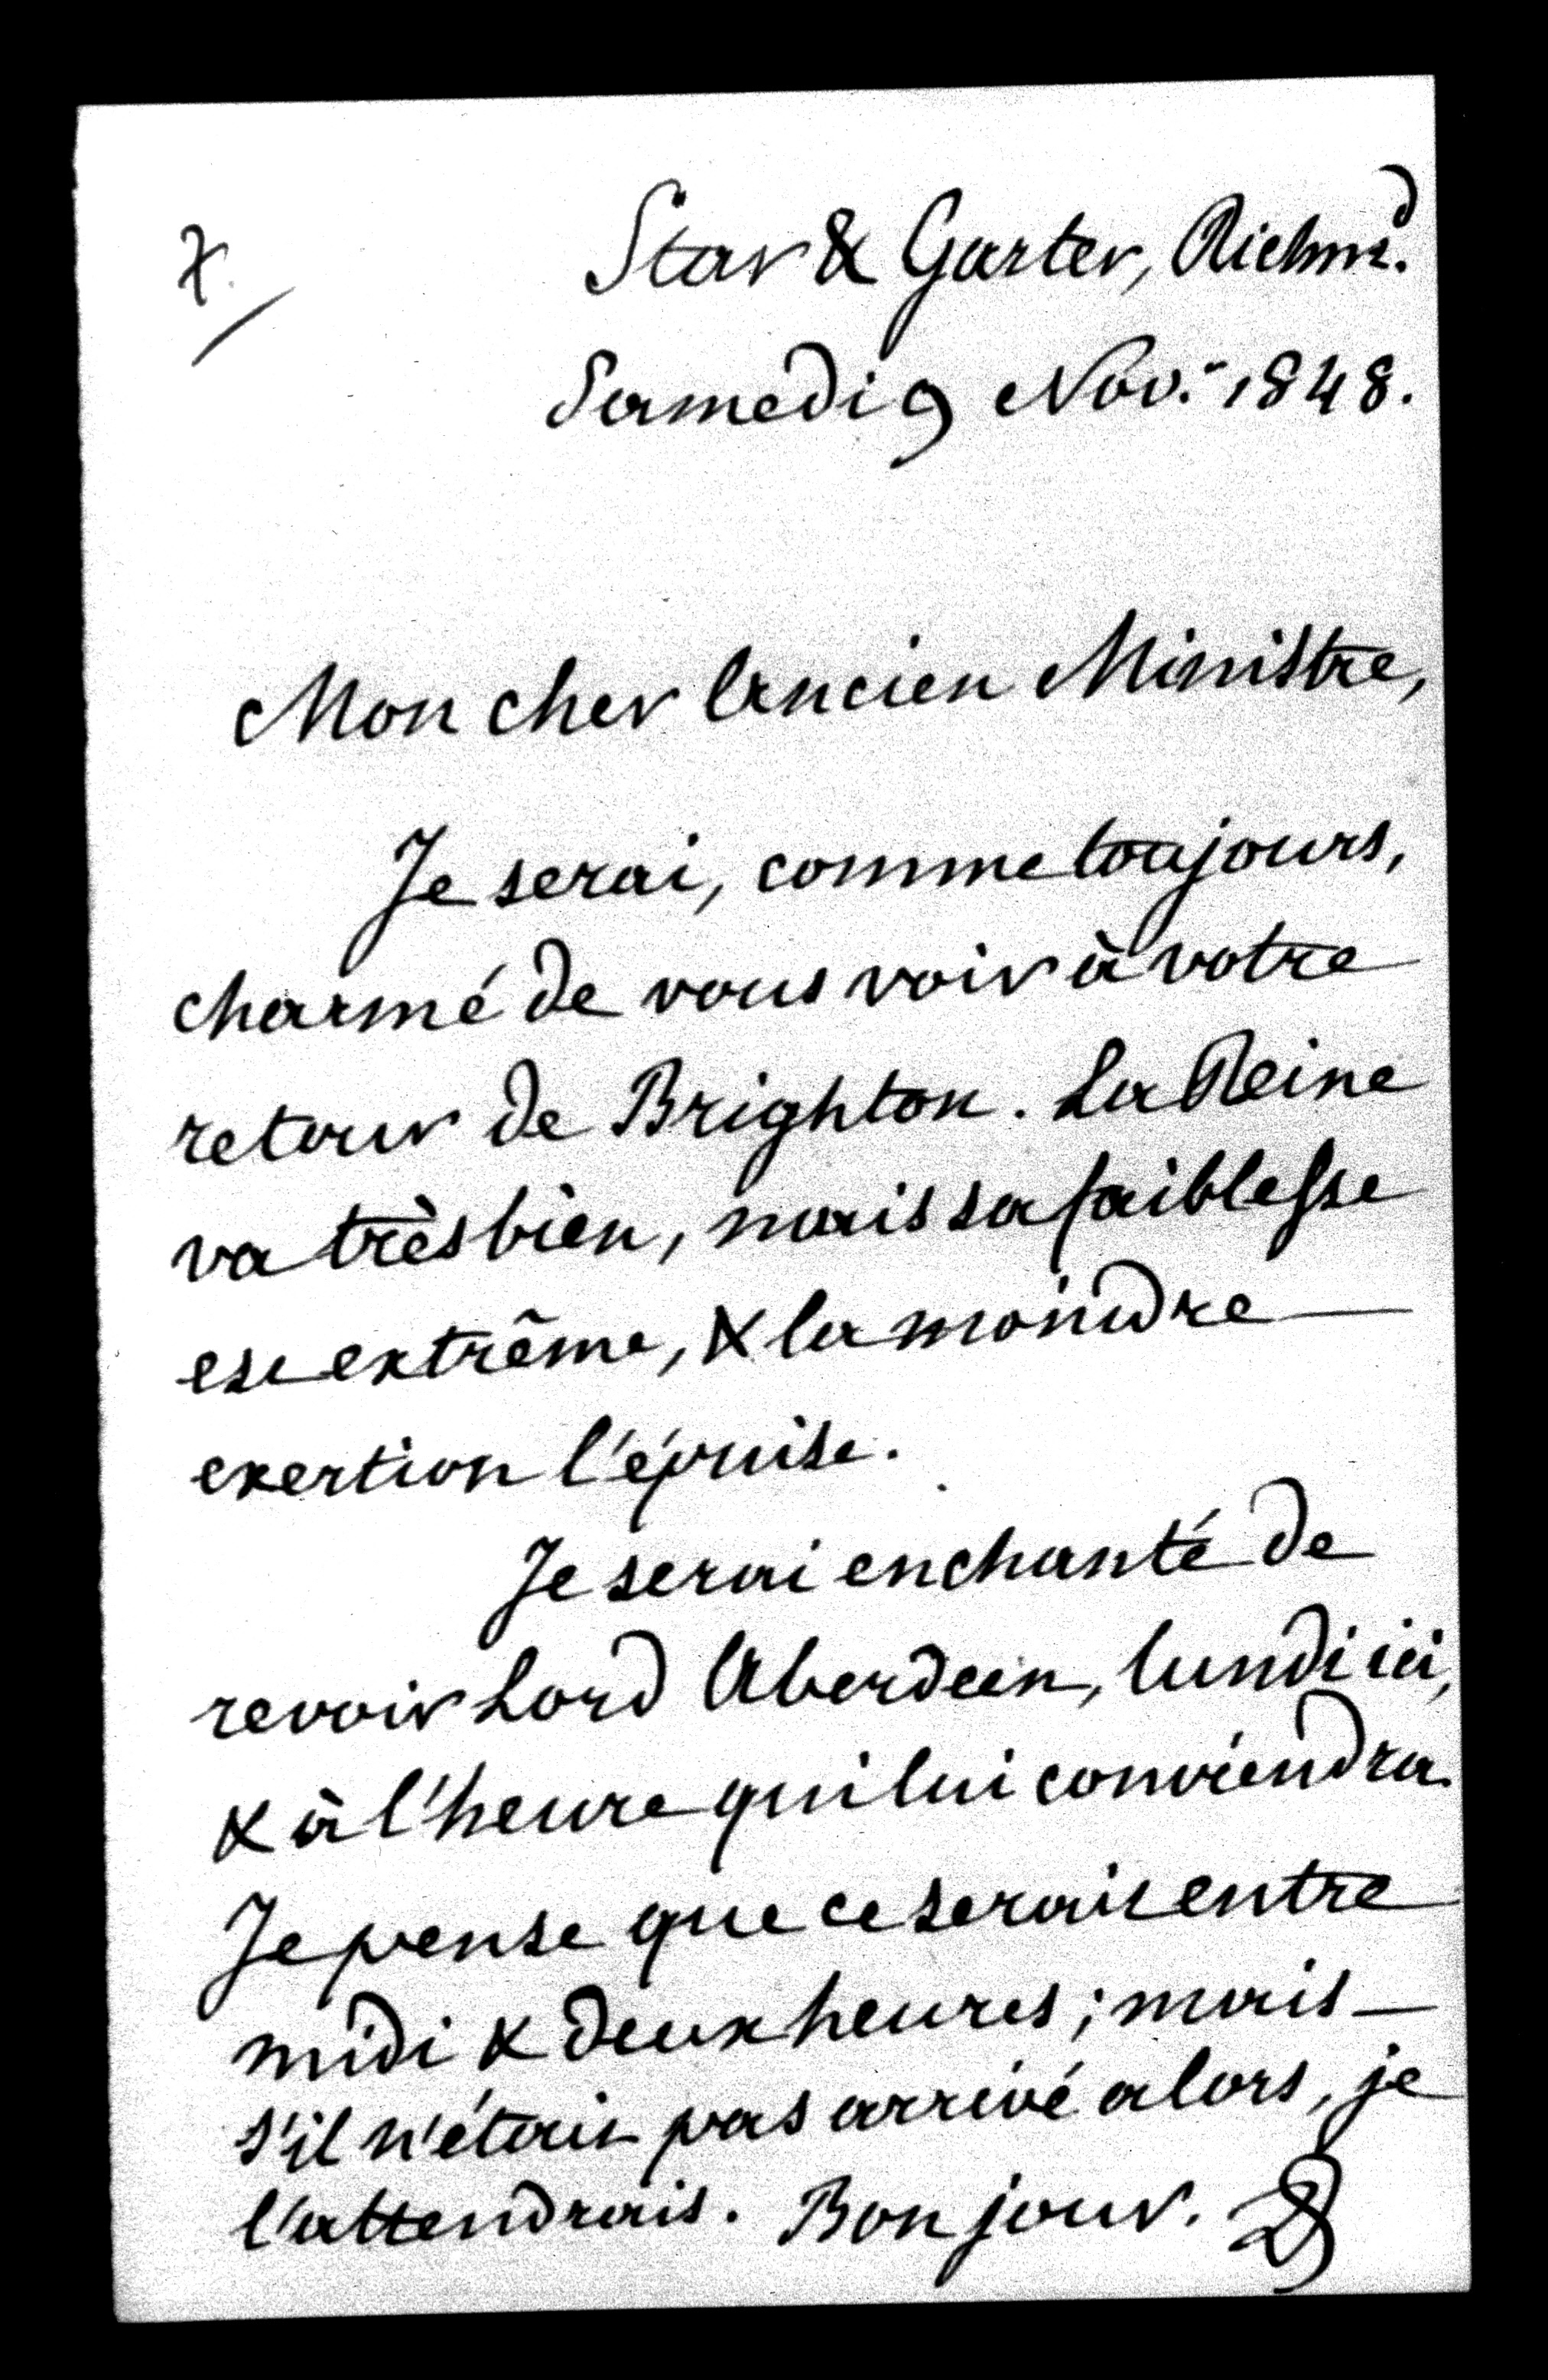 7.
Star & Garter, Richmd.
Samedi 9 Nov. 1848.
Mon cher Ancien Ministre,
Je serai, comme toujours,
charmé de vous voir à votre
retour de Brighton. La Reine
va très bien, mais sa faiblesse
est extrême, & la moindre
exertion l'épuise.
Je serai enchanté de
revoir Lord Aberdeen, lundi ici,
& à l'heure qui lui conviendra.
Je pense que ce serait entre
midi & deux heures; mais
s'il n'était pas arrivé alors, je
l'attendrais. Bonjour.